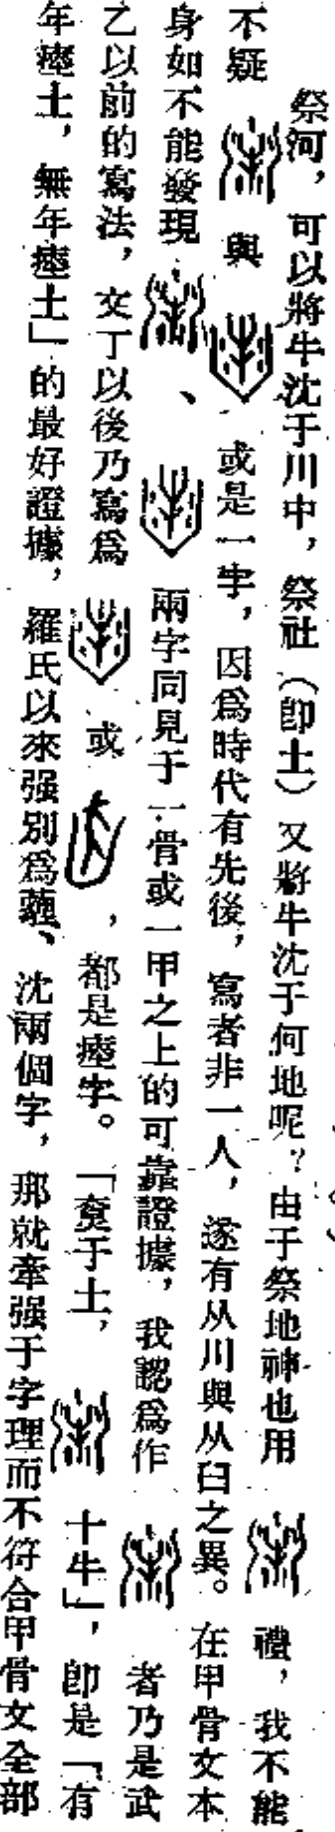 祭河，可以將牛沈于川中，祭社（卽土）又將牛沈于何地呢？由于祭地神也用禮，我不能
不疑與或是一字，因爲時代有先後，寫者非一人，遂有从川與从臼之異。在甲骨文本
身如不能發現、兩字同見于一骨或一甲之上的可靠證據，我認爲作者乃是武
乙以前的寫法，文丁以後乃寫爲或，都是瘞字。「尞于土，十牛」，卽是「有
年瘞土，無年瘞土」的最好證據，羅氏以來强別爲薶、沈兩個字，那就牽强于字理而不符合甲骨文全部